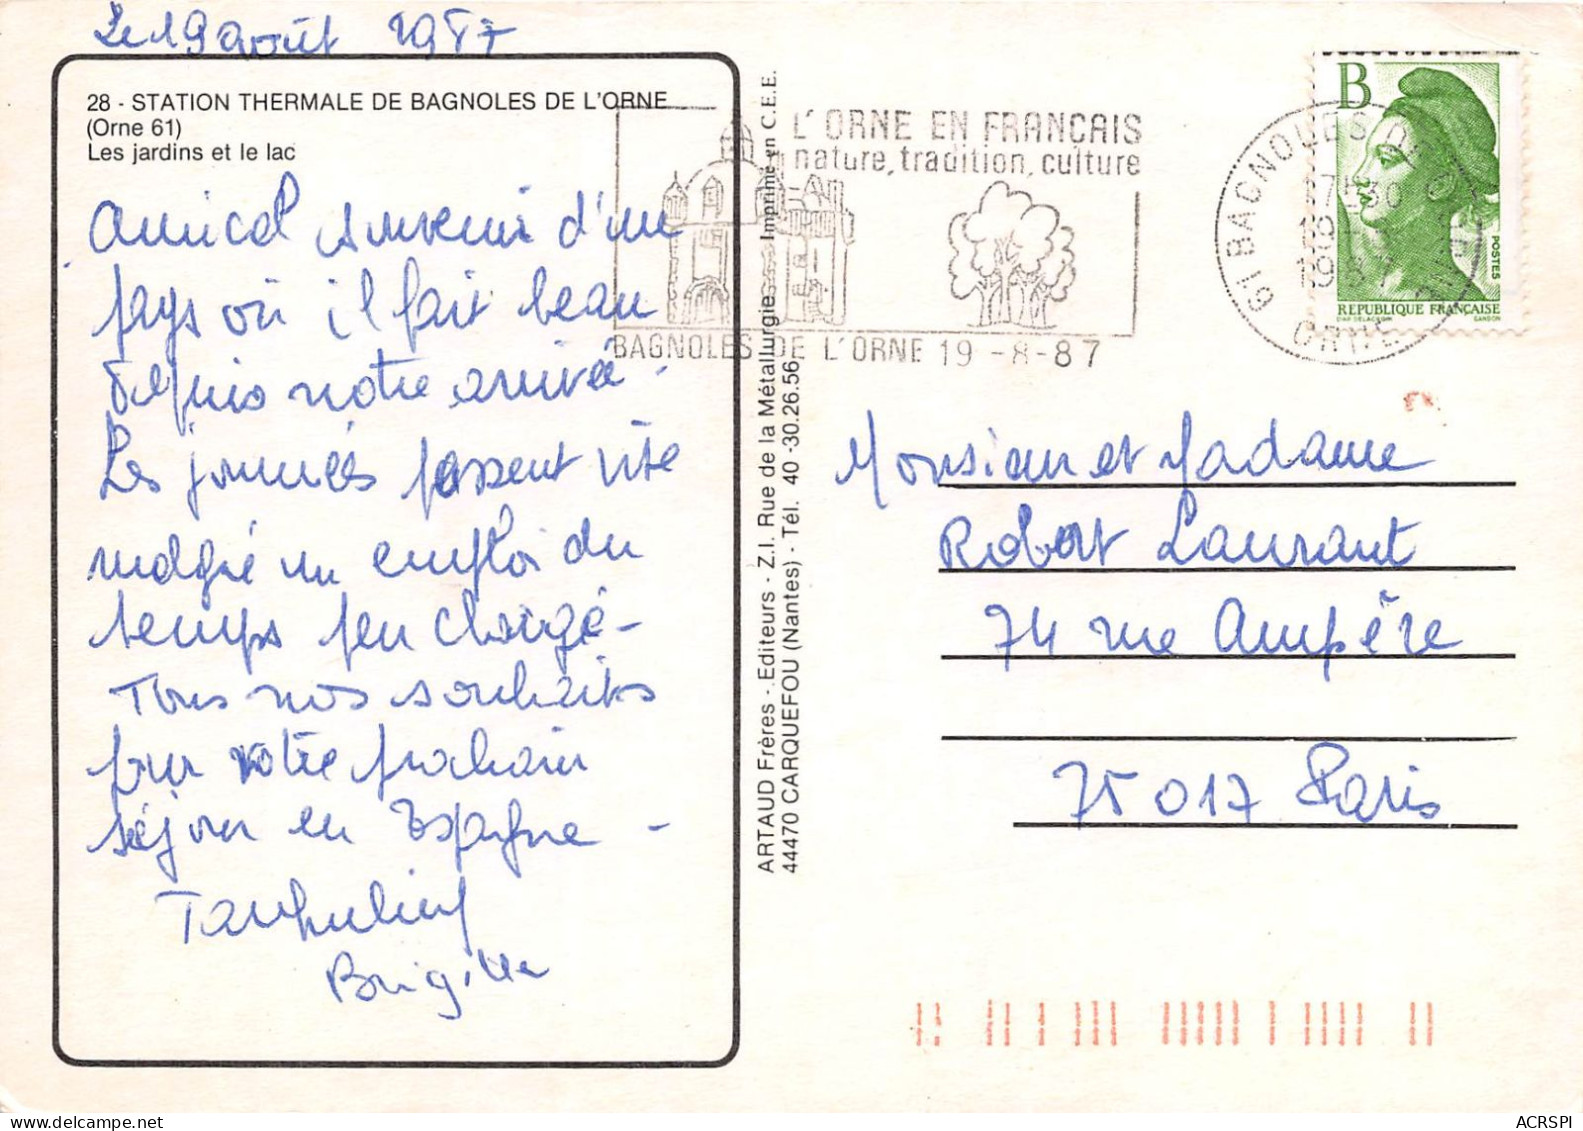 Le 19 août 1987
28 - STATION THERMALE DE BAGNOLES DE L'ORNE
(Orne 61)
Les jardins et le lac
Amical souvenir d'un
pays où il fait beau
depuis notre arrivée.
Les journées passent vite
malgré un emploi du
temps peu chargé -
Tous nos souhaits
pour votre prochain
séjour en Espagne -
Brigitte
ARTAUD Frères - Editeurs - Z.I. Rue de la Métallurgie Imprimé en C.E.E.
44470 CARQUEFOU (Nantes) - Tél. 40-30.26.56
L'ORNE EN FRANCAIS
nature, tradition, culture
BAGNOLES DE L'ORNE 19 -8-87
61 BAGNOLES DE L'ORNE
ORNE
B
POSTES
REPUBLIQUE FRANÇAISE
D'AP. DELACROIX GANDON
Monsieur et Madame
Robert Laurant
74 rue Ampère
75017 Paris
ACRSPI